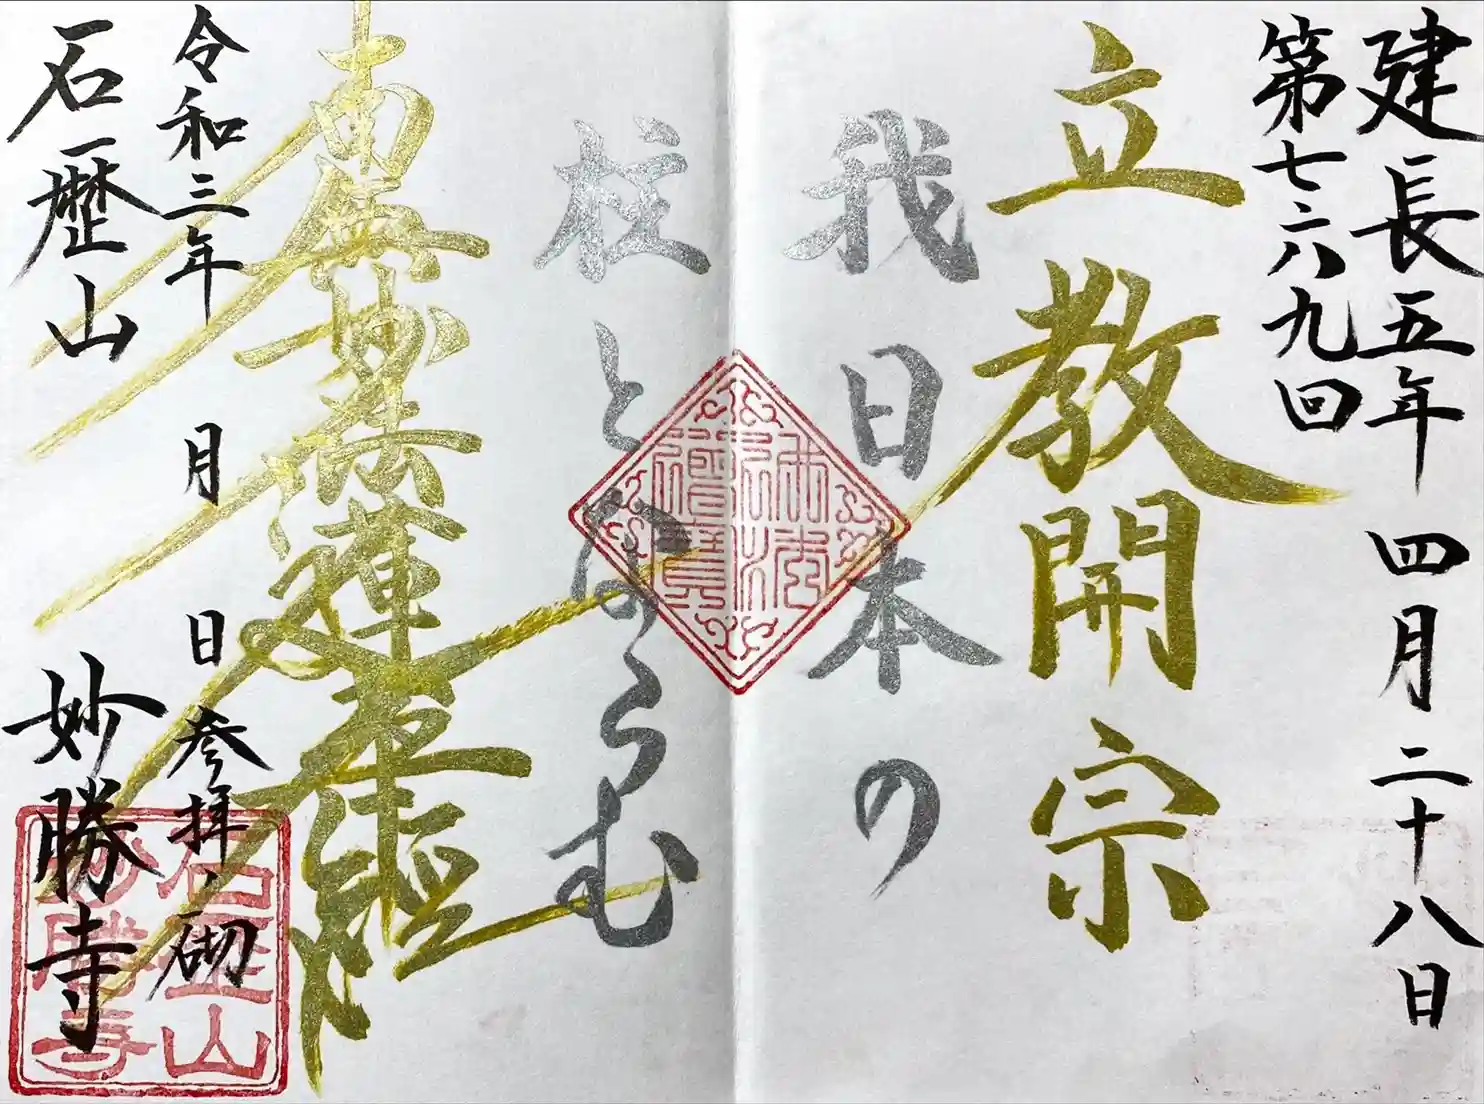 建長五年 四月二十八日
第七六九回
立教開宗
我日本の
柱とならむ
南無妙法蓮華経
令和三年 月 日 参拝ノ砌
石歴山 妙勝寺
石歴山
妙勝寺